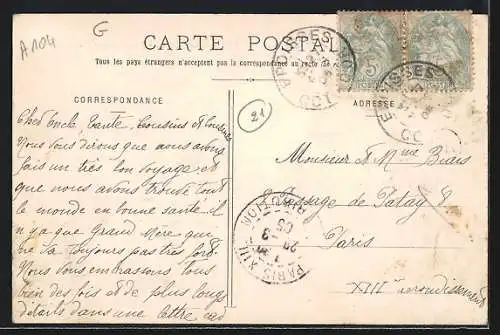 A104
G
CARTE POSTALE
Tous les pays étrangers n'acceptent pas la correspondance au recto
CORRESPONDANCE
ADRESSE
21
Cher Oncle, Tante, Cousins et Cousines
Nous vous dirons que nous avons
fais un très bon voyage et
que nous avons trouvé tout
le monde en bonne santé il
n y a que Grand Mère qui
ne va toujours pas très fort
Nous vous embrassons tous
bien des fois et de plus longs
détails dans une lettre
Monsieur et Mme
Passage de Patay 8
Paris
XIII arrondissement
PARIS XIII
DISTRIBUTION